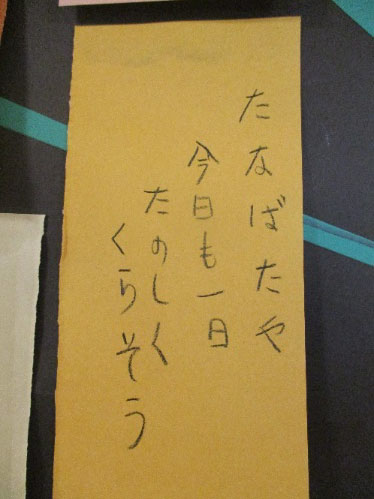 たなばたや
今日も一日
たのしく
くらそう